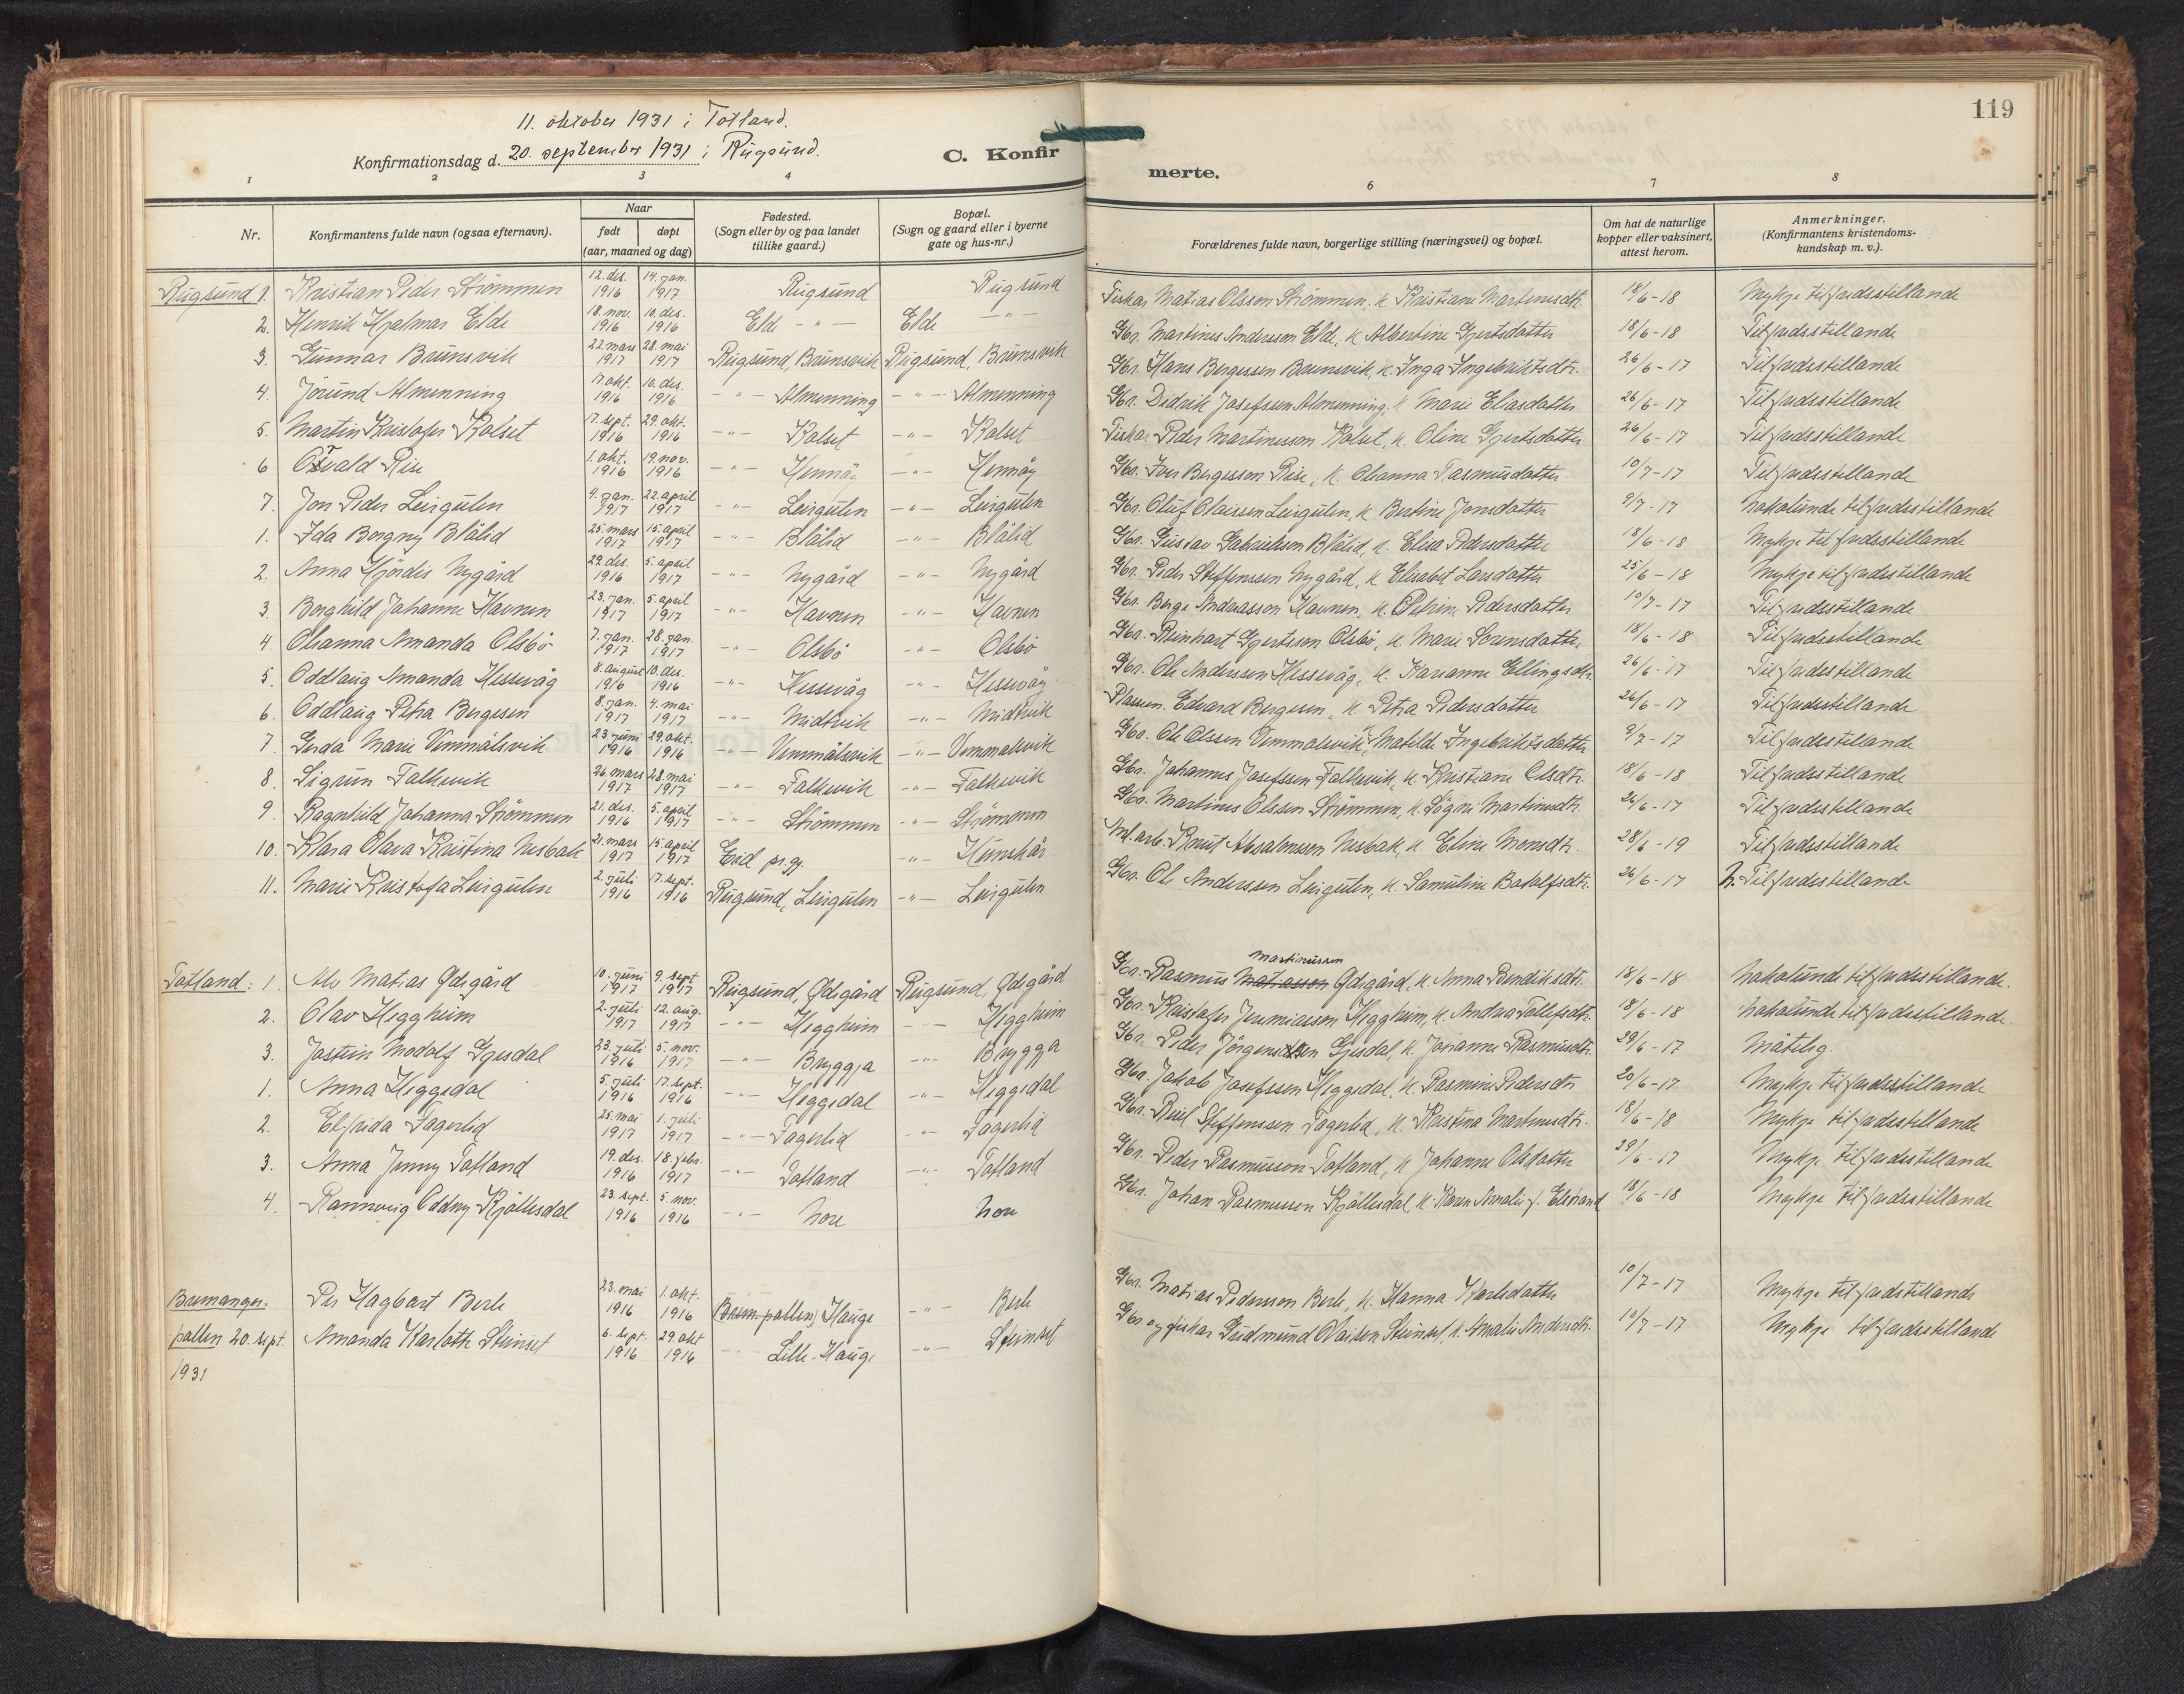 11. oktober 1931 i Totland.
Konfirmationsdag d. 20. september 1931 i Rugsund.
C. Konfir
merte.
119
1 2 3 4 6 7 8
Nr.
Konfirmantens fulde navn (ogsaa efternavn).
Naar
født døpt
(aar, maaned og dag)
Fødested.
(Sogn eller by og paa landet
tillike gaard.)
Bopæl.
(Sogn og gaard eller i byerne
gate og hus-nr.)
Forældrenes fulde navn, borgerlige stilling (næringsvei) og bopæl.
Om hat de naturlige
kopper eller vaksinert,
attest herom.
Anmerkninger.
(Konfirmantens kristendoms-
kundskap m. v.).
Rugsund 1. Kristian Peder Strömmen 12. des. 1916 14. jan. 1917 Rugsund Rugsund Fiskar Matias Olsson Strömmen, k. Kristiane Martinusdtr. 18/6-18 Mykje tilfredsstillande
2. Henrik Hjalmar Elde 18. nov. 1916 10. des. 1916 Elde -"- Elde -"- Gbr. Martinus Andersson Elde, k. Albertine Gjertsdotter 18/6-18 Tilfredsstillande
3. Gunnar Brunsvik 22. mars 1917 28. mai 1917 Rugsund, Brunsvik Rugsund, Brunsvik Gbr. Hans Bergesson Brunsvik, k. Inga Ingebriktsdtr. 26/6-17 Tilfredsstillande
4. Jorund Almenning 17. okt. 1916 10. des. 1916 -"- Almenning -"- Almenning Gbr. Didrik Josefsson Almenning, k. Marie Eliasdotter 26/6-17 Tilfredsstillande
5. Martin Kristofer Kolset 17. sept. 1916 29. okt. 1916 -"- Kolset -"- Kolset Fiskar Peder Martinusson Kolset, k. Oline Gjertsdotter 26/6-17 Tilfredsstillande
6 Rise 1. okt. 1916 19. nov. 1916 -"- Hennöy -"- Hennöy Gbr. Iver Bergesson Rise, k. Olianna Rasmusdotter 10/7-17 Tilfredsstillande
7. Jon Peder Leirgulen 4. jan. 1917 22. april 1917 -"- Leirgulen -"- Leirgulen Gbr. Oluf Olaissen Leirgulen, k. Bertine Jonsdotter 9/7-17 Nokolunde tilfredsstillande
1. Ida Borgny Blålid 25. mars 1917 15. april 1917 -"- Blålid -"- Blålid Gbr. Gustav Gabrielsson Blålid, k. Elisa Pedersdotter 18/6-18 Mykje tilfredsstillande
2. Anna Hjördis Nygård 29. des. 1916 5. april 1917 -"- Nygård -"- Nygård Gbr. Peder Steffensson Nygård, k. Elisabet Larsdotter 25/6-18 Mykje tilfredsstillande
3. Borghild Johanne Havnen 23. jan. 1917 5. april 1917 -"- Havnen -"- Havnen Gbr. Berge Andreasson Havnen, k. Pedersdotter 10/7-17 Tilfredsstillande
4. Olianna Amanda Olsbö 7. jan. 1917 28. jan. 1917 -"- Olsbö -"- Olsbö Gbr. Reinhart Gjertsson Olsbö, k. Marie Sorensdotter 18/6-18 Tilfredsstillande
5. Oddlaug Amanda Hessevåg 8. august 1916 10. des. 1916 -"- Hessevåg -"- Hessevåg Gbr. Ole Andersson Hessevåg, k. Karianne Ellingsdtr. 26/6-17 Tilfredsstillande
6. Oddlaug Petra Bergesen 8. jan. 1917 4. mai 1917 -"- Midtvik -"- Midtvik Plassm. Edvard Bergesen, k. Petra Pedersdotter 26/6-17 Tilfredsstillande
7. Gerda Marie Vemmålsvik 23. juni 1916 29. okt. 1916 -"- Vemmålsvik -"- Vemmelsvik Gbr. Ole Olsson Vemmalsvik, Matilde Ingebriktsdotter 9/7-17 Tilfredsstillande
8. Sigrun Falkevik 26. mars 1917 28. mai 1917 -"- Falkevik -"- Falkevik Gbr. Johannes Josefsson Falkevik, k. Kristiane Olsdtr. 18/6-18 Tilfredsstillande
9. Ragnhild Johanna Strömmen 21. des. 1916 5. april 1917 -"- Strömmen -"- Strömmen Gbr. Martinus Olsson Strömmen, k. Sögni Martinusdtr. 26/6-17 Tilfredsstillande
10. Klara Olava Kristina Nesbak 21. mars 1917 15. april 1917 Eid pr.gj. -"- Gbr. Knut Absalonsson Nesbak, k. Eline Monsdtr. 28/6-19 Tilfredsstillande
11. Marie Kristofa Leirgulen 2. juli 1916 17. sept. 1916 Rugsund, Leirgulen -"- Leirgulen Gbr. Ole Andersson Leirgulen, k. Samuline Botolfsdtr. 26/6-17 N. Tilfredsstillande
Totland: 1 Alv Matias Ødegård 10. juni 1917 9. sept 1917 Rugsund, Ødegård Rugsund, Ødegård Gbr. Rasmus Matiasson Martinusson Ødegård, k. Anna Bendiksdtr. 18/6-18 Nokolunde tilfredsstillande.
2. Olav Heggheim 2. juli 1917 12. aug. 1917 -"- Heggheim -"- Heggheim Gbr. Kristofer Jeremiasson Heggheim, k. Andrea Tollefsdtr. 18/6-18 Nokolunde tilfredsstillande
3. Jostein Modolf Gjesdal 23. juli 1916 5. nov. 1917 -"- Bryggja -"- Brygga Gbr. Peder Jörgensen Gjesdal, k. Johanne Rasmusdtr. 29/6-17 Måteleg
1. Anna Heggedal 5. juli 1916 17. sept. 1916 -"- Heggedal -"- Heggedal Gbr. Jakob Josefsson Heggedal, k. Rasmine Pedersdtr 20/6-17 Mykje tilfredsstillande
2. Elfrida Fagerlid 25. mai 1917 1. juli 1917 -"- Fagerlid -"- Fagerlid Gbr. Steffensson Fagerlid, k. Kristina Martinusdtr. 18/6-18 Mykje tilfredsstillande
3. Anna Jenny Totland 19. des. 1916 18. febr. 1917 -"- Totland -"- Totland Gbr. Peder Rasmusson Totland, k Johanne Olsdotter 29/6-17 Mykje tilfredsstillande
4. Rannveig Oddny Kjöllesdal 23. sept. 1916 5. nov. 1916 -"- Nore Nore Gbr. Johan Rasmussen Kjöllesdal, k. Karen Amalie f. Elstrand 18/6-18 Mykje tilfredsstillande
Bremanger- Per Hagbart Berle 23. mai 1916 1. okt. 1916 (Brem.-pollen) Hauge -"- Berle Gbr. Matias Pedersson Berle, k. Hanna Karlsdotter 10/7-17 Mykje tilfredsstillande
pollen 20. sept. Amanda Karlotte Steinset 6. sept. 1916 29. okt 1916 Lille-Hauge -"- Steinset Gbr. og fiskar Gudmund Olaisen Steinset, k. Amalie Andersdtr. 10/7-17 Mykje tilfredsstillande
1931